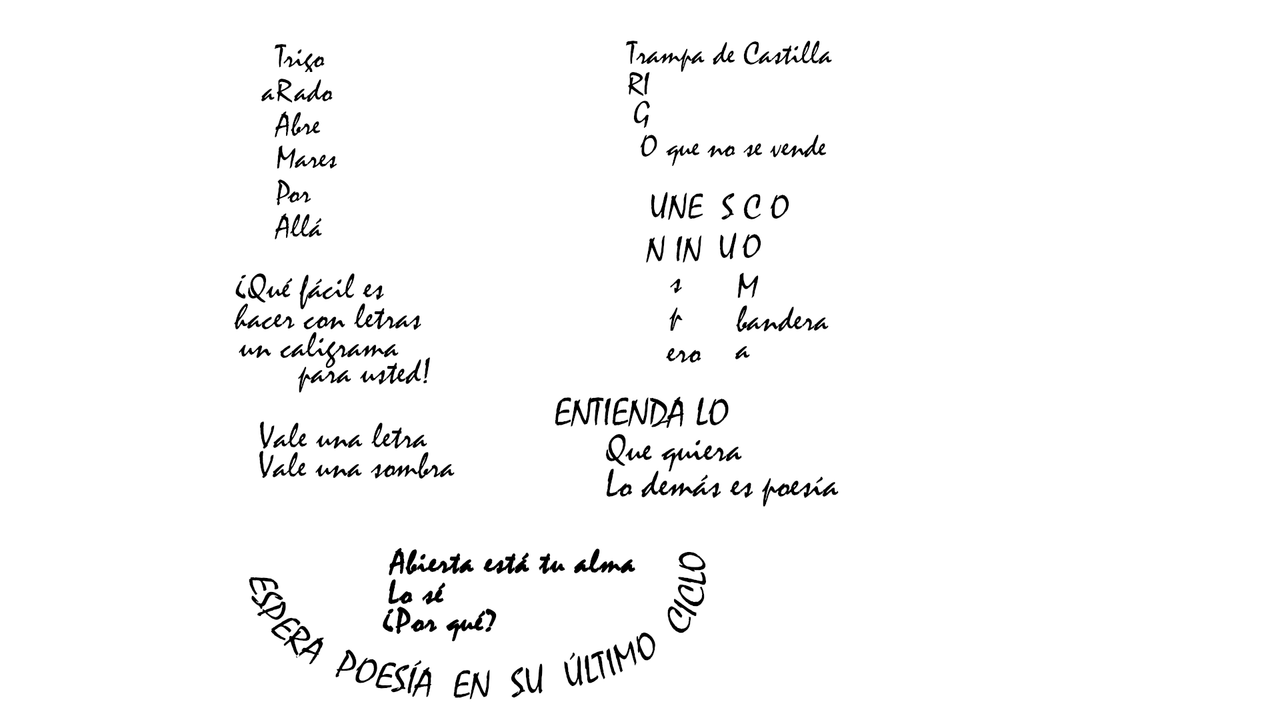 Trigo
aRado
Abre
Mares
Por
Allá
¡Qué fácil es
hacer con letras
un caligrama
para usted!
Vale una letra
Vale una sombra
Trampa de Castilla
RI
G
O que no se vende
UNE SCO
N IN UO
s M
p bandera
ero a
ENTIENDA LO
Que quiera
Lo demás es poesía
Abierta está tu alma
Lo sé
¿Por qué?
ESPERA POESÍA EN SU ÚLTIMO CICLO